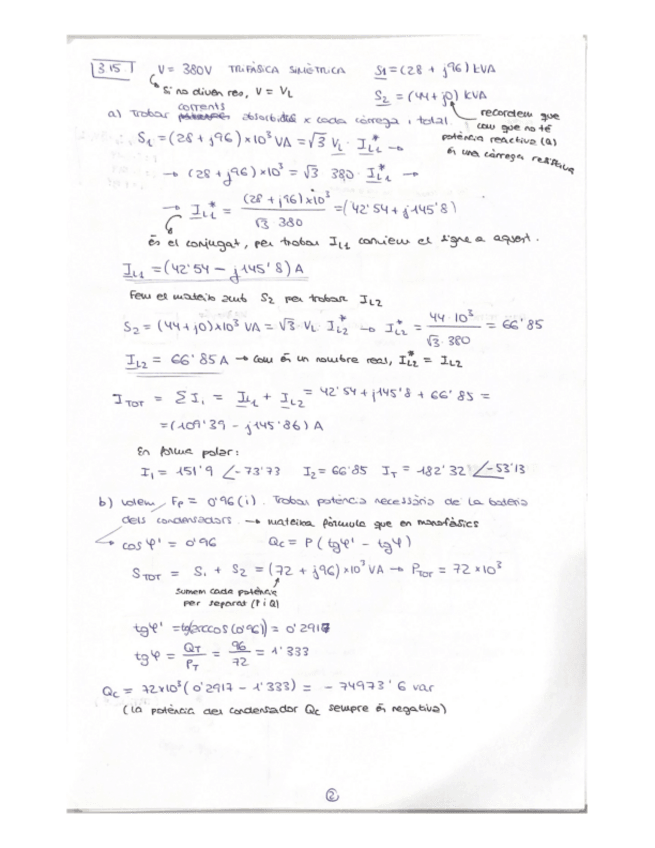 3.15 V = 380V TRIFÀSICA SIMÈTRICA S1 = (28 + j96) kVA
Si no diuen res, V = VL S2 = (44 + j0) kVA
a) Trobar corrents absorbides x cada càrrega i total.
recordem que
com que no té
potència reactiva (Q)
és una càrrega resistiva
S1 = (28 + j96) × 10³ VA = √3 VL · IL1* →
→ (28 + j96) × 10³ = √3 · 380 · IL1* →
→ IL1* = (28 + j96) × 10³ / √3 · 380 = (42'54 + j145'8)
és el conjugat, per trobar IL1 canviem el signe a aquest.
IL1 = (42'54 − j145'8) A
Fem el mateix amb S2 per trobar IL2
S2 = (44 + j0) × 10³ VA = √3 · VL · IL2* → IL2* = 44 · 10³ / √3 · 380 = 66'85
IL2 = 66'85 A → com és un nombre real, IL2* = IL2
ITOT = Σ Ii = IL1 + IL2 = 42'54 + j145'8 + 66'85 =
= (109'39 − j145'86) A
En forma polar:
I1 = 151'9 ∠−73'73 I2 = 66'85 IT = 182'32 ∠−53'13
b) Volem Fp = 0'96 (i). Trobar potència necessària de la bateria
dels condensadors. → mateixa fórmula que en monofàsics
→ cos φ' = 0'96 Qc = P (tg φ' − tg φ)
STOT = S1 + S2 = (72 + j96) × 10³ VA → PTOT = 72 × 10³
sumem cada potència
per separat (P i Q)
tg φ' = tg(arccos (0'96)) = 0'2917
tg φ = QT / PT = 96 / 72 = 1'333
Qc = 72×10³ (0'2917 − 1'333) = − 74973'6 var
(la potència del condensador Qc sempre és negativa)
2